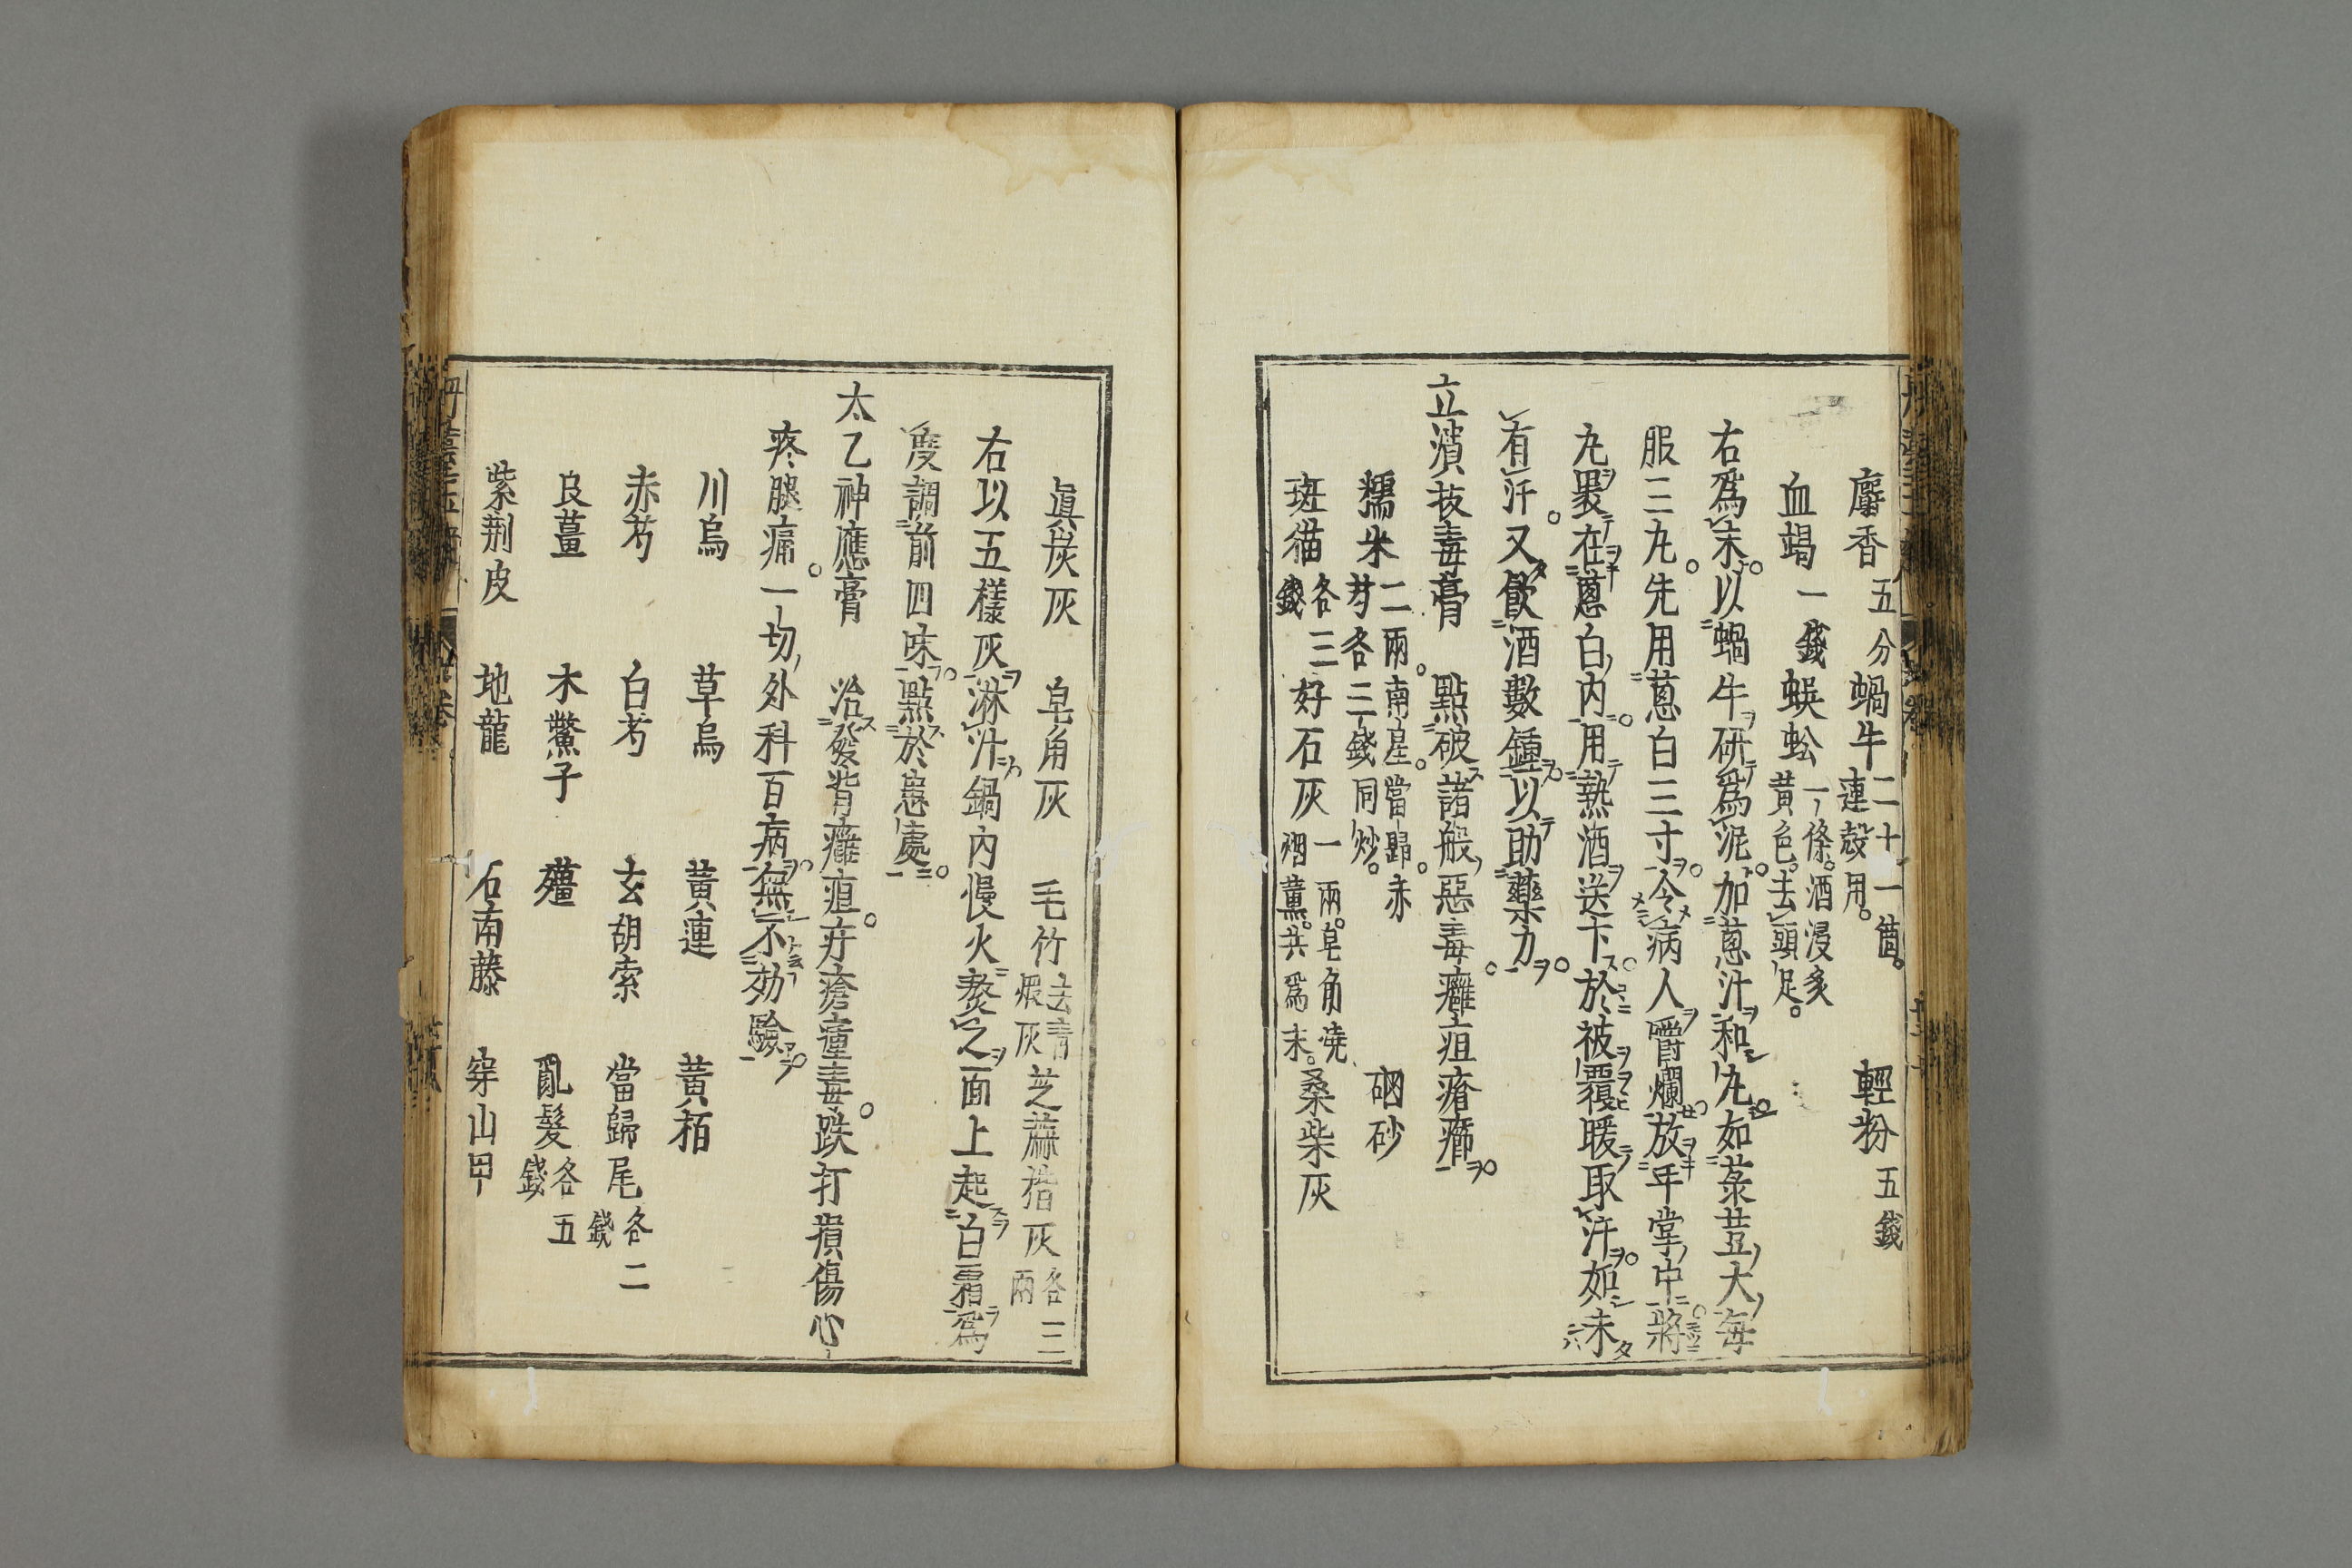 麝香五分 蝸牛二十一箇。連殼用。 輕粉五錢
血竭一錢 蜈蚣一條。酒浸炙黃色。去頭足。
右爲末。以蝸牛研爲泥。加蔥汁和丸。如菉荳大。每
服三丸。先用蔥白三寸。令病人嚼爛。放手掌中。將
丸裹在蔥白内。用熱酒送下。於被覆暖取汗。如未
有汗。又飲酒數鍾。以助藥力。
立潰拔毒膏 點破諸般惡毒。癰疽瘡癤。
糯米二兩。南星。當歸。赤芍各三錢同炒。 硇砂
斑猫各三錢 好石灰一兩。皂角燒烟薰。共爲末。 桑柴灰
眞炭灰 皂角灰 毛竹去青煆灰 芝蔴楷灰各三兩
右以五樣灰。淋汁。鍋内慢火熬之。面上起白霜爲
度。調前四味。點於患處。
太乙神應膏 治發背癰疽。疔瘡瘇毒。跌打損傷心
疼腿痛。一切外科百病。無不効驗。
川烏 草烏 黃連 黃栢
赤芍 白芍 玄胡索 當歸尾各二錢
良薑 木鱉子 殭 亂髮各五錢
紫荆皮 地龍 石南藤 穿山甲